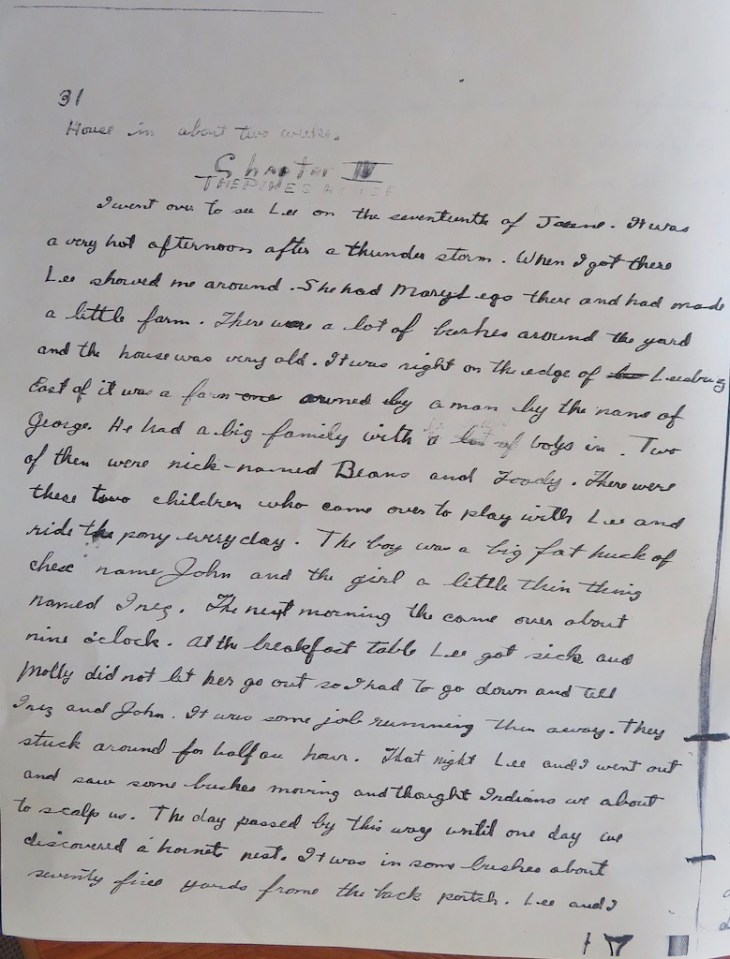 31
House in about two weeks.
Chapter IV
THE PIKE'S HOUSE
I went over to see Lee on the seventeenth of June. It was
a very hot afternoon after a thunder storm. When I got there
Lee showed me around. She had Mary Lego there and had made
a little farm. There were a lot of bushes around the yard
and the house was very old. It was right on the edge of Leesburg
East of it was a farm owned by a man by the name of
George. He had a big family with a lot of boys in. Two
of then were nick-named Beans and Toody. There were
these two children who came over to play with Lee and
ride the pony every day. The boy was a big fat huck of
chese name John and the girl a little thin thing
named Inez. The next morning the came over about
nine o'clock. At the breakfast table Lee got sick and
Molly did not let her go out so I had to go down and tell
Inez and John. It was some job running then away. They
stuck around for half an hour. That night Lee and I went out
and saw some bushes moving and thought Indians we about
to scalp us. The day passed by this way until one day we
discovered a hornet nest. It was in some bushes about
seventy five yards frome the back portch. Lee and I